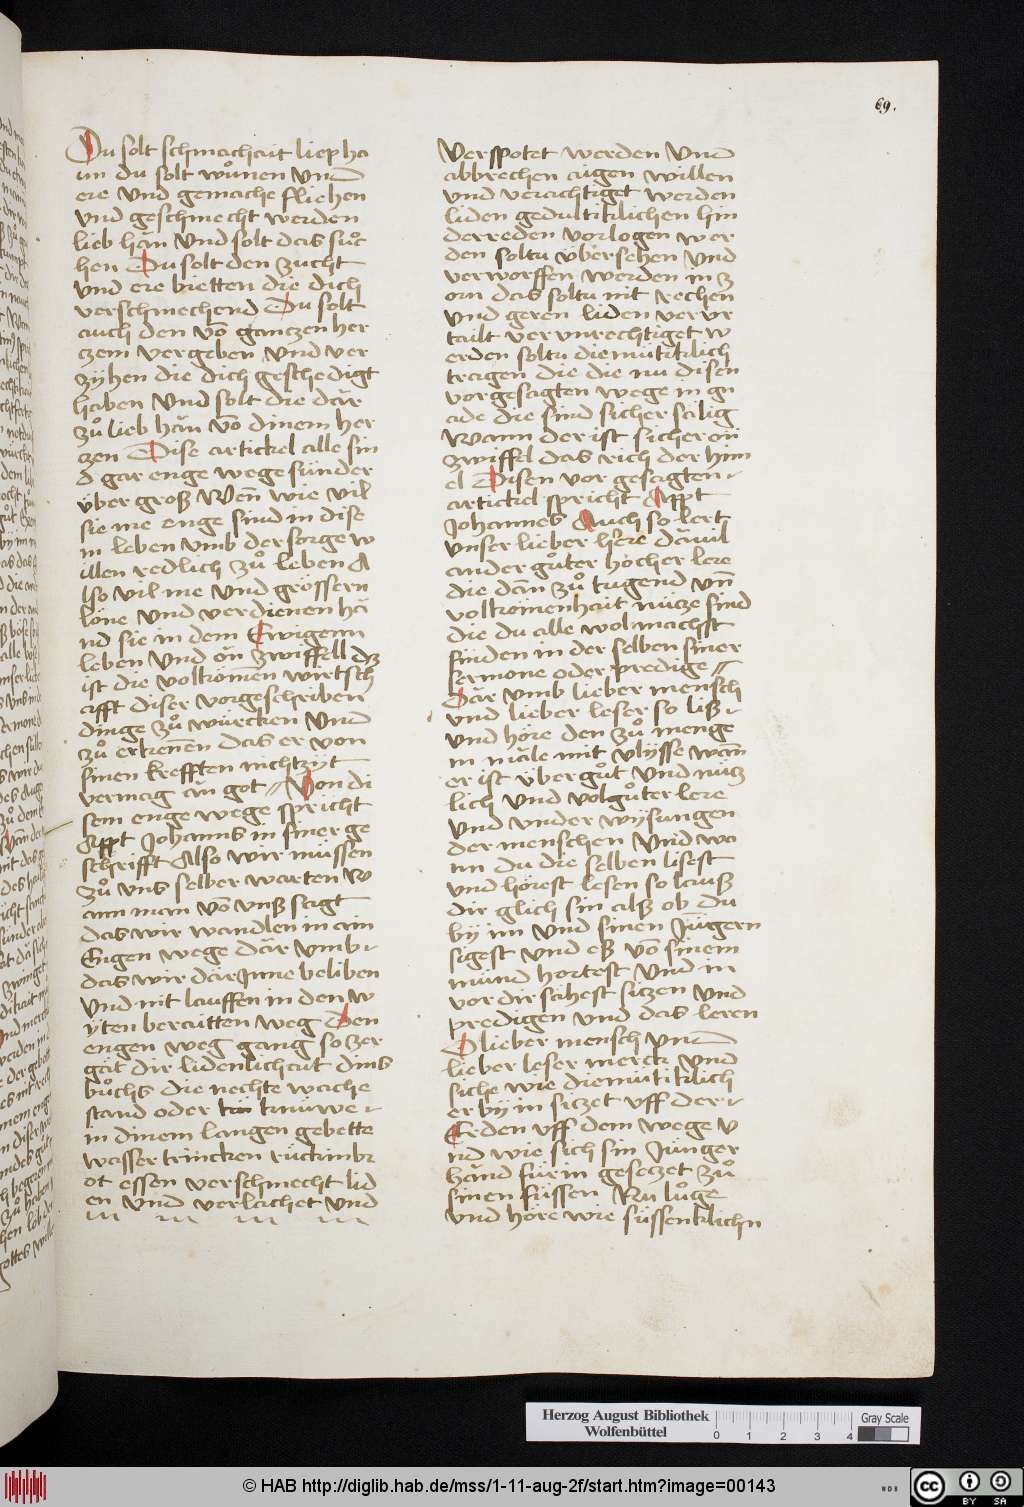 69.
Du solt schmachait liep ha
un du solt wůnen Und
ere Und gemache fliehen
Und geschmecht werden
lieb hān Und solt das sůc
hen Du solt den zucht
Und ere bietten die dich
verschmechend Du solt
auch den vō ganczen her
czem vergeben Und ver
zÿhen die dich geschedigt
haben Und solt die dār
zů lieb hān vō dinem her
czen Dise artickel alle sin
d gar enge wege sünder
über groß Wen̄ wie vil
sie me enge sind in dise
m leben umb der sorge w
illen redlich zů leben A
lso vil me Und grössern
löne Und verdienen hā
nd sie in dem Ewigenn
leben Und ōn zwiffell dz
ist die volkōmen wirtsch
afft diser vorgeschriben
dinge zů würcken Und
zů erkenen das er von
sinen krefften nichtzyt
vermag ān got Von di
sem enge wege spricht
Appt Johanns in siner ge
schrifft Also wir müssen
zů uns selber warten W
ann man vō unß sagt
das wir wandlen in ain
Eigen wege dār Umb
das wir dār jnne beliben
Und nit lauffen in den w
ÿten beraitten weg Den
engen weg gang so zer
gāt dir lidenlichait dins
bůchs die nechte wache
stand oder knüwe
in dinem langen gebette
wasser trincken rückinbr
ot essen verschmecht lid
en Und verlachet Und
Verspotet werden Und
abbrechen aigen willen
und verachtiget werden
liden gedultiklichen hin
derreden vorlogen wer
den soltu übersehen Und
verworffen werden in z
orn das soltu nit rechen
Und geren liden verur
tailt verunrechtiget w
erden soltu diemütiklich
tragen die die nu disen
vorgesagten wege in gn
ade die sind sicher sälig
Wann der ist sicher on
zwiffel das rich der him
el Disen vor gesagten
artickel spricht Appt
Johannes Auch so lert
unser lieber here dā vil
ander gůter hocher lere
die dān zů tugend uñ
volkomenhait nücze sind
die du alle wol machst
finden in der selben siner
sermone oder predige
Dār Umb lieber mensch
und lieber leser so liß
Und höre den zů menge
m māle mit vlysse wān
er ist über gůt Und nücz
lich Und vol gůter lere
Und under wÿsungen
der menschen Und wa
nn du die selben lisest
und hörest lesen so lauß
dir glich sin alß ob du
bÿ im Und sinen Jüngern
sigest Und eß vō sinem
mund hortest Und in
vor dir sähest siczen Und
predigen Und das leren
O lieber mensch Und
lieber leser merck Und
siche wie diemütiklich
er bÿ in siczet uff der
Erden uff dem wege U
nd wie sich sin Jünger
hānd für in geseczet zů
sinen füssen Nu lůge
Und höre wie süssenklichn
Herzog August Bibliothek
Wolfenbüttel
0 1 2 3 4
Gray Scale
© HAB http://diglib.hab.de/mss/1-11-aug-2f/start.htm?image=00143
WDB
cc BY SA